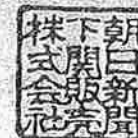 朝日新聞
下関販売
株式会社